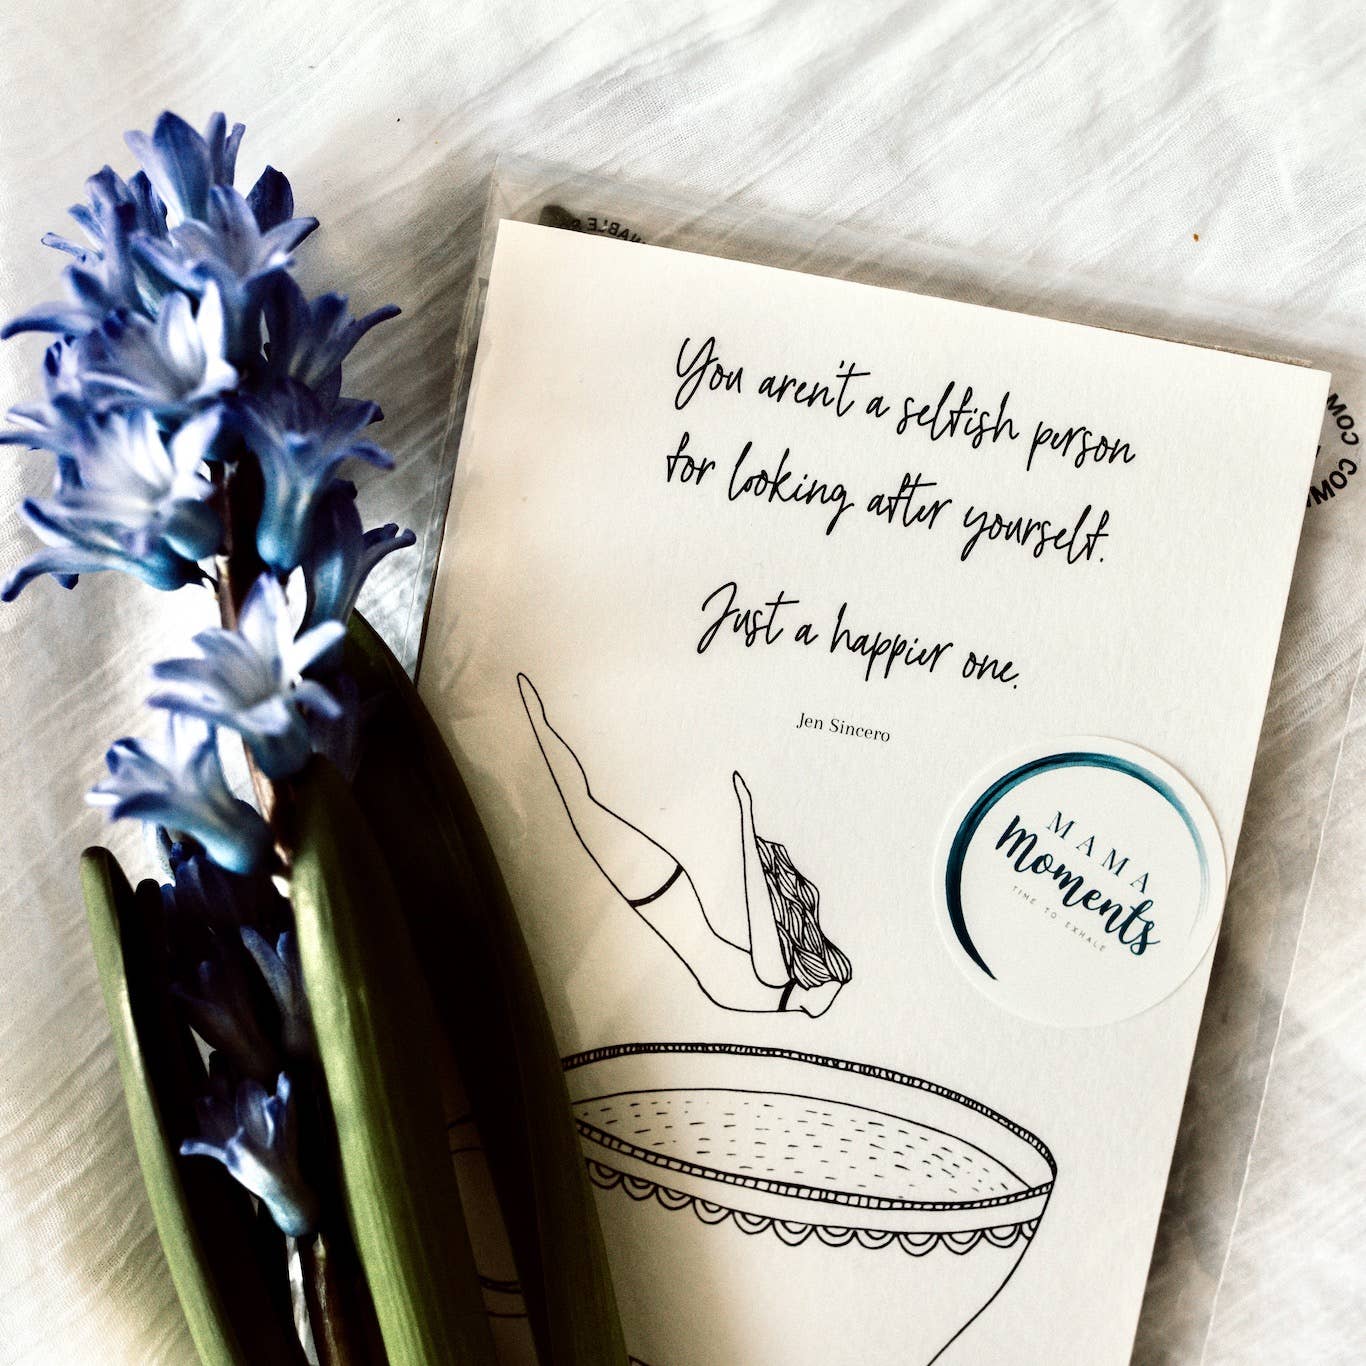 You aren't a selfish person
for looking after yourself.
Just a happier one.
Jen Sincero
MAMA
Moments
TIME TO EXHALE